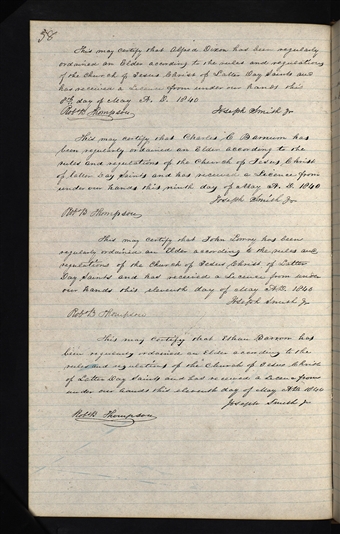 58
This may certify that Alfred Dixon has been regularly
ordained an Elder according to the rules and regulations
of the Church of Jesus Christ of Latter Day Saints and
has received a Licence from under our hands this
8th day of May A. D. 1840
Joseph Smith Jr
Robt B. Thompson
This may certify that Charles C. Barnum has
been regularly ordained an Elder according to the
rules and regulations of the Church of Jesus Christ
of latter Day Saints and has received a Licence from
under our hands this ninth day of May A. D. 1840
Joseph Smith Jr
Robt B Thompson
This may certify that John Lowry has been
regularly ordained an Elder according to the rules and
regulations of the Church of Jesus Christ of Latter
Day Saints and has received a Licence from under
our hands this eleventh day of May A.D. 1840
Joseph Smith Jr
Robt B Thompson
This may certify that Ethan Barrom has
been regularly ordained an Elder according to the
rules and regulations of the Church of Jesus Christ
of Latter Day Saints and has received a Licence from
under our hands this eleventh day of May A.D. 1840
Joseph Smith Jr
Robt B Thompson